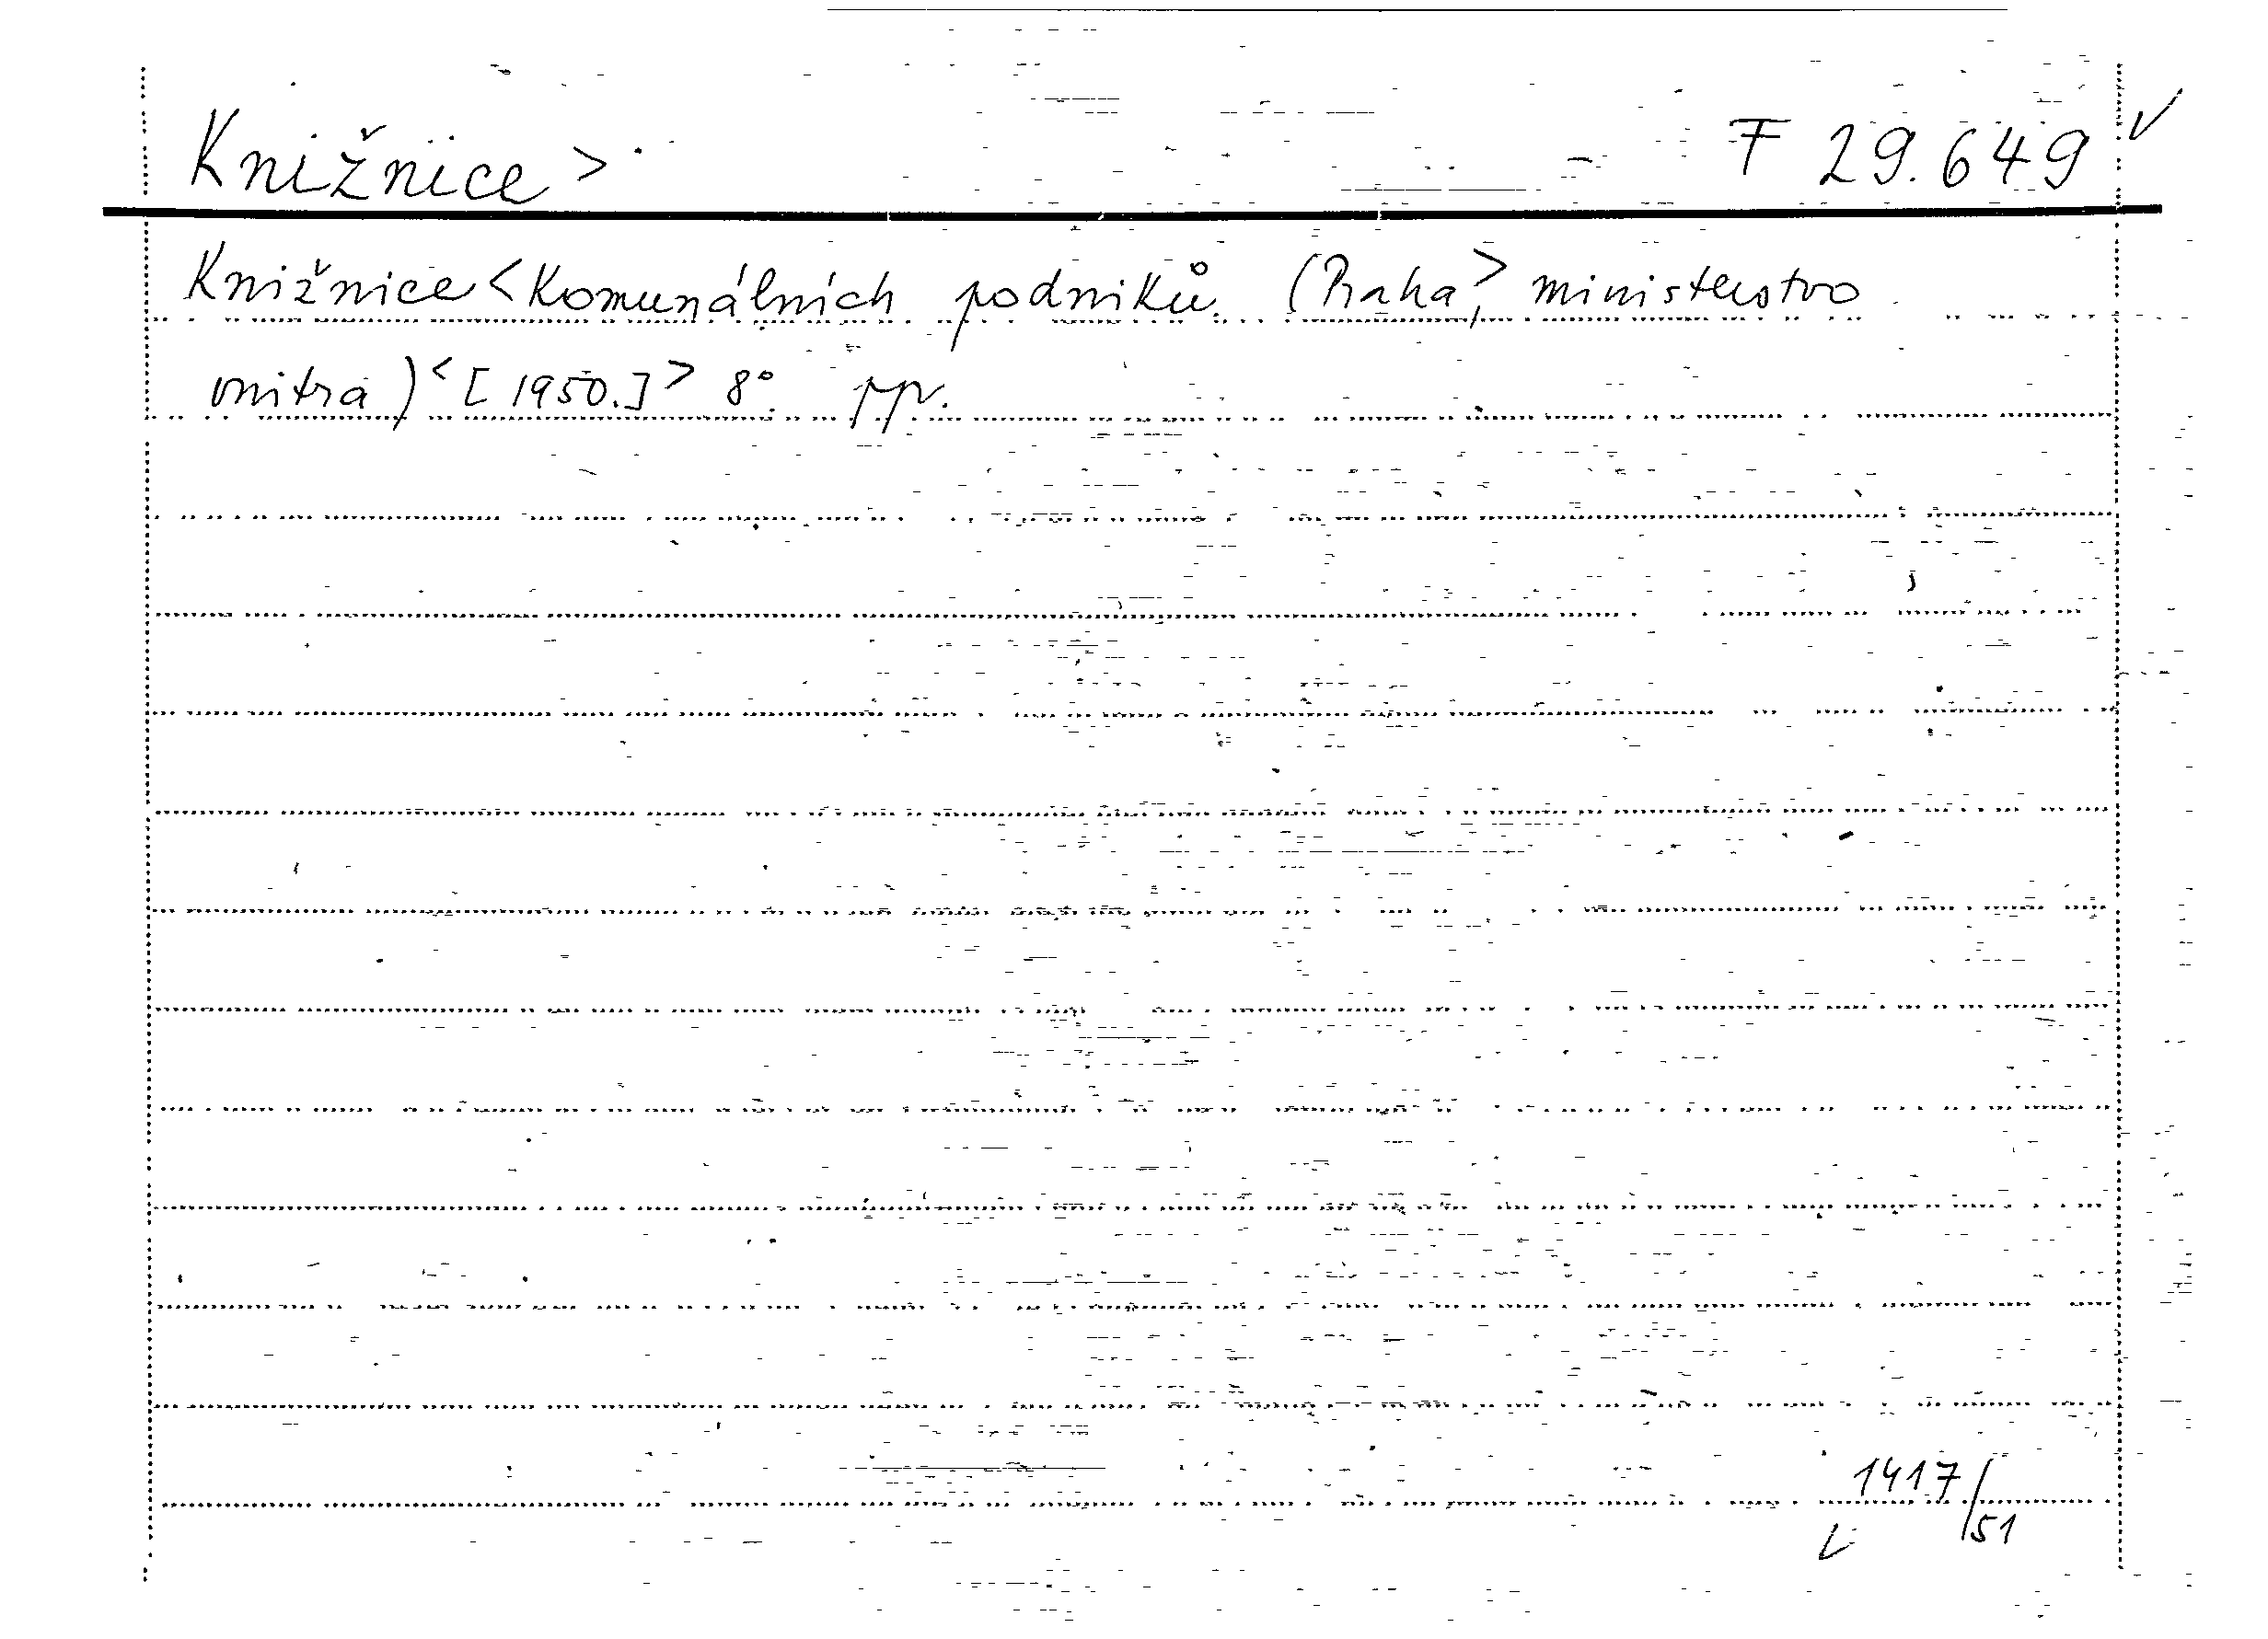 Knižnice > F 29.649 ✓
Knižnice < Komunálních podniků. (Praha, > ministerstvo
vnitra) < [1950.] > 8° pp.
1417/51